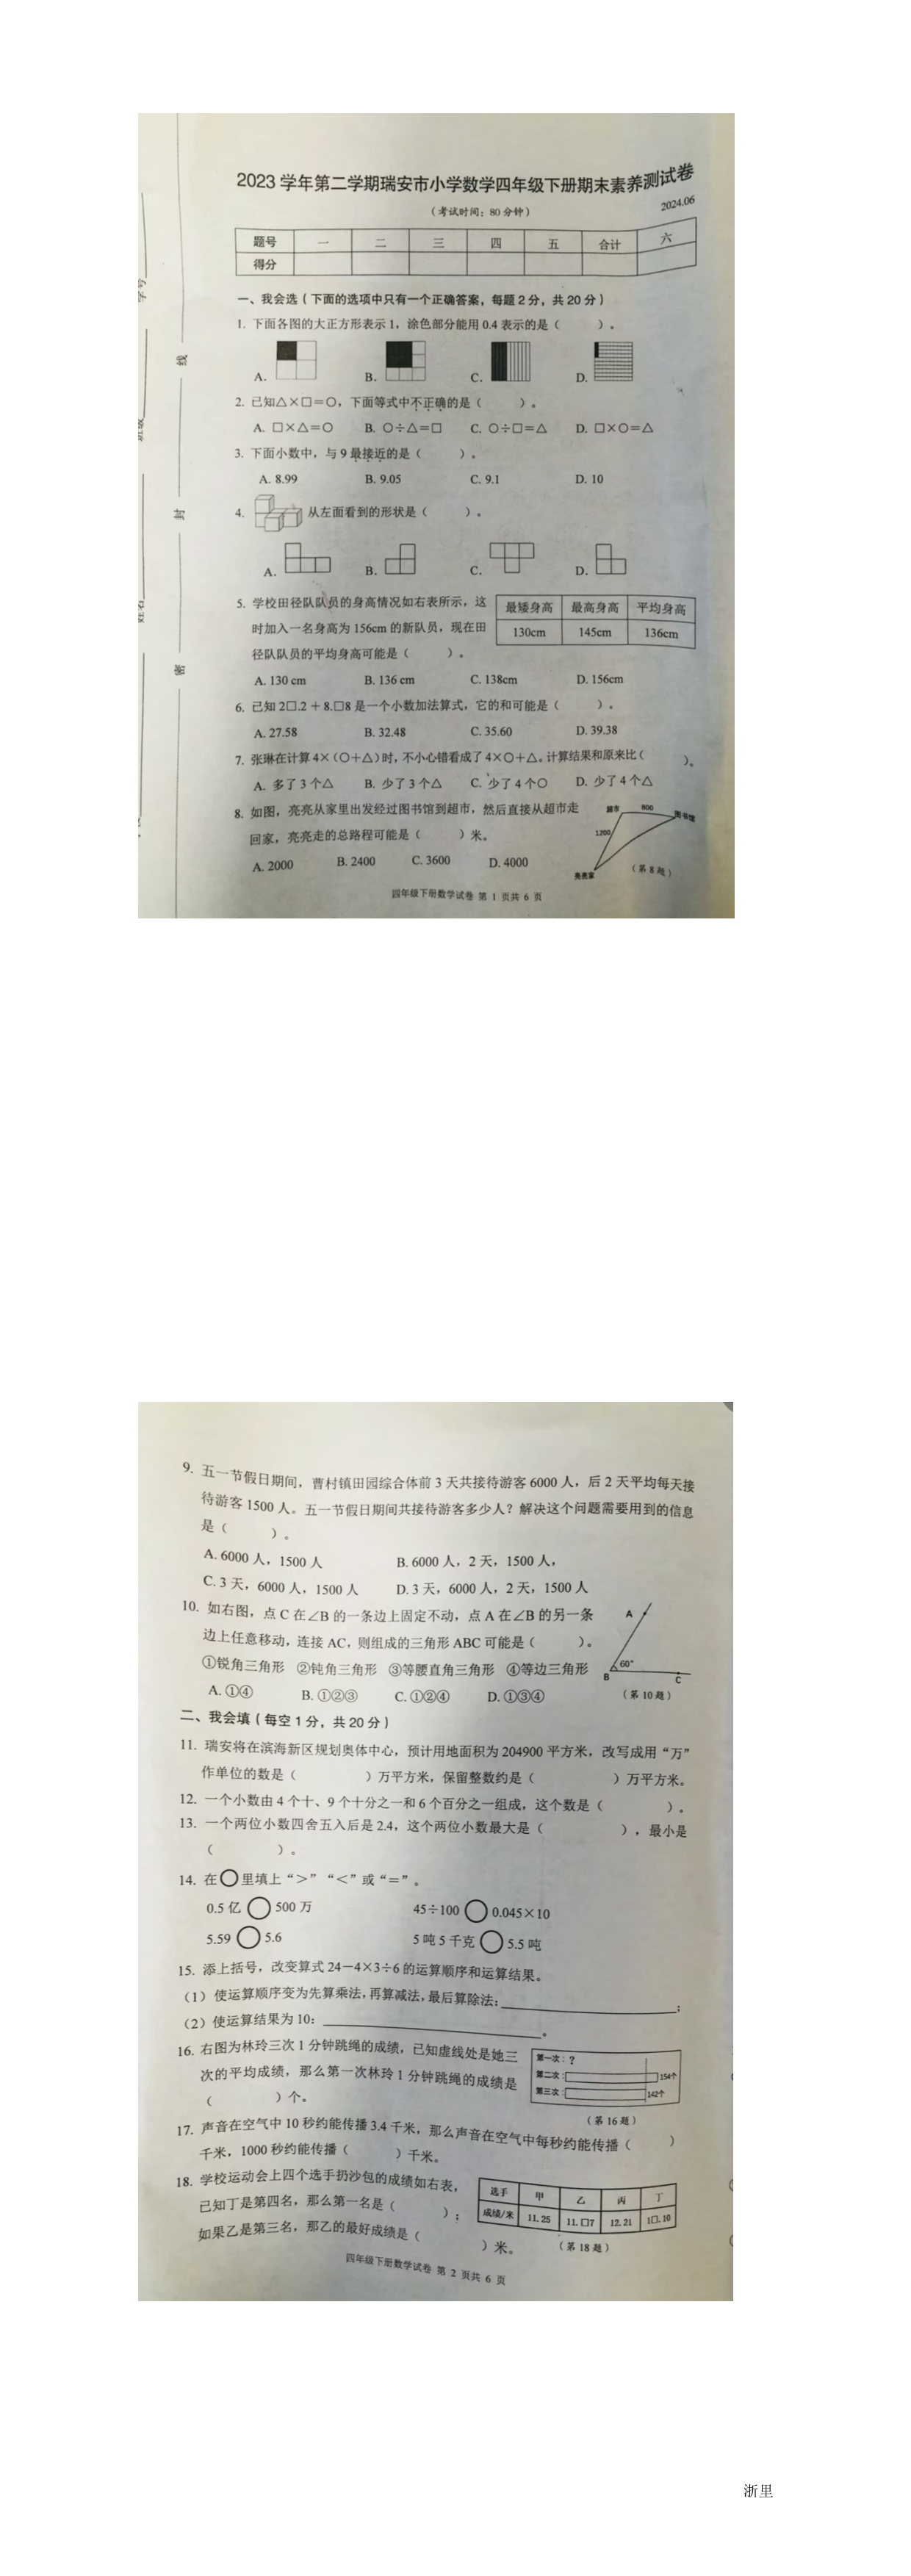 2023 学年第二学期瑞安市小学数学四年级下册期末素养测试卷
2024.06
（考试时间：80 分钟）
题号 一 二 三 四 五 合计 六
得分
线
封
密
一、我会选（下面的选项中只有一个正确答案，每题 2 分，共 20 分）
1. 下面各图的大正方形表示 1，涂色部分能用 0.4 表示的是（ ）。
A. B. C. D.
2. 已知△×□=○，下面等式中不正确的是（ ）。
A. □×△=○ B. ○÷△=□ C. ○÷□=△ D. □×○=△
3. 下面小数中，与 9 最接近的是（ ）。
A. 8.99 B. 9.05 C. 9.1 D. 10
4. 从左面看到的形状是（ ）。
A. B. C. D.
5. 学校田径队队员的身高情况如右表所示，这
时加入一名身高为 156cm 的新队员，现在田
径队队员的平均身高可能是（ ）。
最矮身高 最高身高 平均身高
130cm 145cm 136cm
A. 130 cm B. 136 cm C. 138cm D. 156cm
6. 已知 2□.2 + 8.□8 是一个小数加法算式，它的和可能是（ ）。
A. 27.58 B. 32.48 C. 35.60 D. 39.38
7. 张琳在计算 4×（○+△）时，不小心错看成了 4×○+△。计算结果和原来比（ ）。
A. 多了 3 个△ B. 少了 3 个△ C. 少了 4 个○ D. 少了 4 个△
8. 如图，亮亮从家里出发经过图书馆到超市，然后直接从超市走
回家，亮亮走的总路程可能是（ ）米。
A. 2000 B. 2400 C. 3600 D. 4000
超市 800 图书馆
1200
亮亮家
（第 8 题）
四年级下册数学试卷 第 1 页共 6 页
9. 五一节假日期间，曹村镇田园综合体前 3 天共接待游客 6000 人，后 2 天平均每天接
待游客 1500 人。五一节假日期间共接待游客多少人？解决这个问题需要用到的信息
是（ ）。
A. 6000 人，1500 人 B. 6000 人，2 天，1500 人，
C. 3 天，6000 人，1500 人 D. 3 天，6000 人，2 天，1500 人
10. 如右图，点 C 在∠B 的一条边上固定不动，点 A 在∠B 的另一条
边上任意移动，连接 AC，则组成的三角形 ABC 可能是（ ）。
①锐角三角形 ②钝角三角形 ③等腰直角三角形 ④等边三角形
A. ①④ B. ①②③ C. ①②④ D. ①③④
A
60°
B C
（第 10 题）
二、我会填（每空 1 分，共 20 分）
11. 瑞安将在滨海新区规划奥体中心，预计用地面积为 204900 平方米，改写成用“万”
作单位的数是（ ）万平方米，保留整数约是（ ）万平方米。
12. 一个小数由 4 个十、9 个十分之一和 6 个百分之一组成，这个数是（ ）。
13. 一个两位小数四舍五入后是 2.4，这个两位小数最大是（ ），最小是
（ ）。
14. 在○里填上“>”“<”或“=”。
0.5 亿 ○ 500 万 45÷100 ○ 0.045×10
5.59 ○ 5.6 5 吨 5 千克 ○ 5.5 吨
15. 添上括号，改变算式 24－4×3÷6 的运算顺序和运算结果。
（1）使运算顺序变为先算乘法，再算减法，最后算除法：；
（2）使运算结果为 10：。
16. 右图为林玲三次 1 分钟跳绳的成绩，已知虚线处是她三
次的平均成绩，那么第一次林玲 1 分钟跳绳的成绩是
（ ）个。
第一次：？
第二次： 154个
第三次： 142个
（第 16 题）
17. 声音在空气中 10 秒约能传播 3.4 千米，那么声音在空气中每秒约能传播（ ）
千米，1000 秒约能传播（ ）千米。
18. 学校运动会上四个选手扔沙包的成绩如右表，
已知丁是第四名，那么第一名是（ ）；
如果乙是第三名，那乙的最好成绩是（ ）米。
选手 甲 乙 丙 丁
成绩/米 11.25 11.□7 12.21 1□.10
（第 18 题）
四年级下册数学试卷 第 2 页共 6 页
浙里